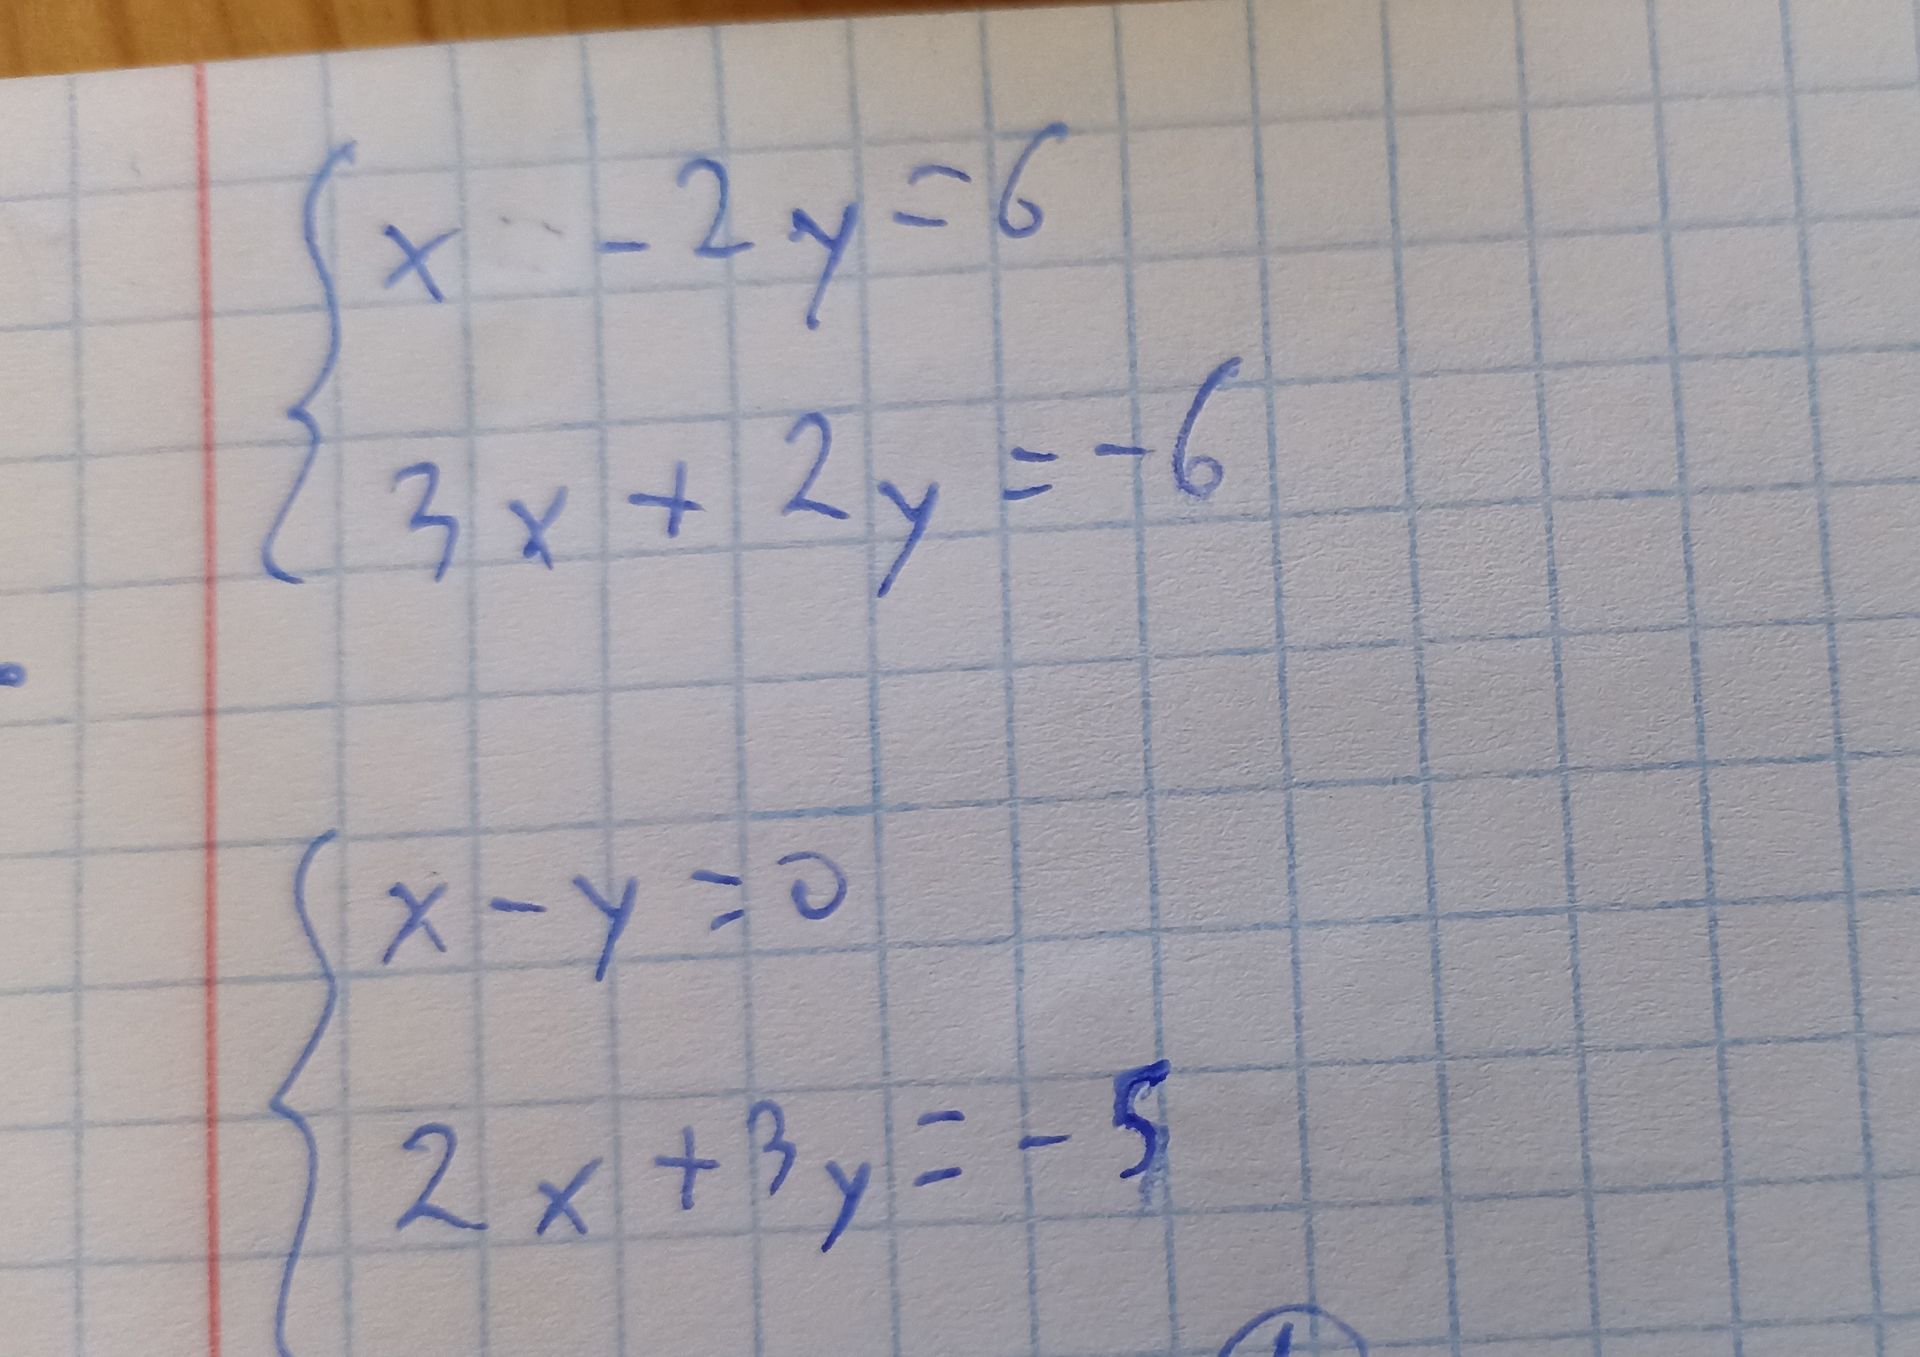 x - 2y = 6
3x + 2y = -6
x - y = 0
2x + 3y = -5